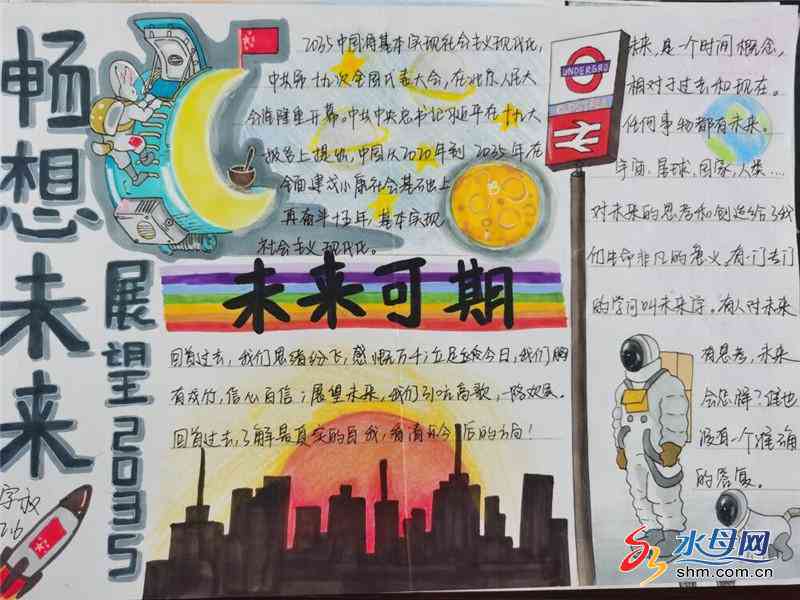 畅想未来
展望2035
2035中国将基本实现社会主义现代化,
中共第十九次全国代表大会,在北京人民大
会堂隆重开幕。中共中央总书记习近平在十九大
报告上提出,中国从2020年到2035年在
全面建成小康社会基础上
再奋斗十五年,基本实现
社会主义现代化。
UNDERGRO
未来,是一个时间概念,
相对于过去和现在。
任何事物都有未来。
宇宙、星球、国家、人类…
对未来的思考和创造给了我
们生命非凡的意义。有一门专门
的学问叫未来学。有人对未来
有思考,未来
会怎样?谁也
没有一个准确
的答复。
未来可期
回首过去,我们思绪纷飞,感慨万千;立足今日,我们胸
有成竹,信心百倍;展望未来,我们引吭高歌,一路欢笑。
回首过去,了解最真实的自我,看清自今后的方向!
水母网
shm.com.cn